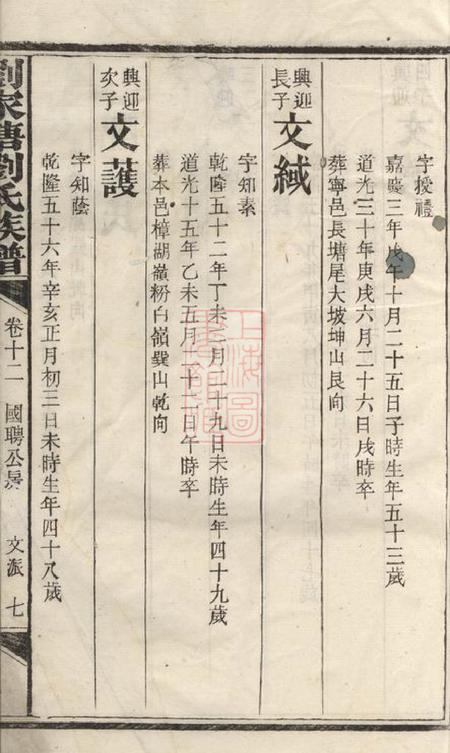 字授禮
嘉慶三年戊午十月二十五日子時生年五十三歲
道光三十年庚戌六月二十六日戌時卒
葬寧邑長塘尾大坡坤山艮向
興迎長子
文緎
字知素
乾隆五十二年丁未二月二十九日未時生年四十九歲
道光十五年乙未五月二十二日午時卒
葬本邑樟湖嶺粉白嶺巽山乾向
興迎次子
文護
字知蔭
乾隆五十六年辛亥正月初三日未時生年四十八歲
劉家塘劉氏族譜
卷十二
國聘公房
文派
七
上海圖書館藏